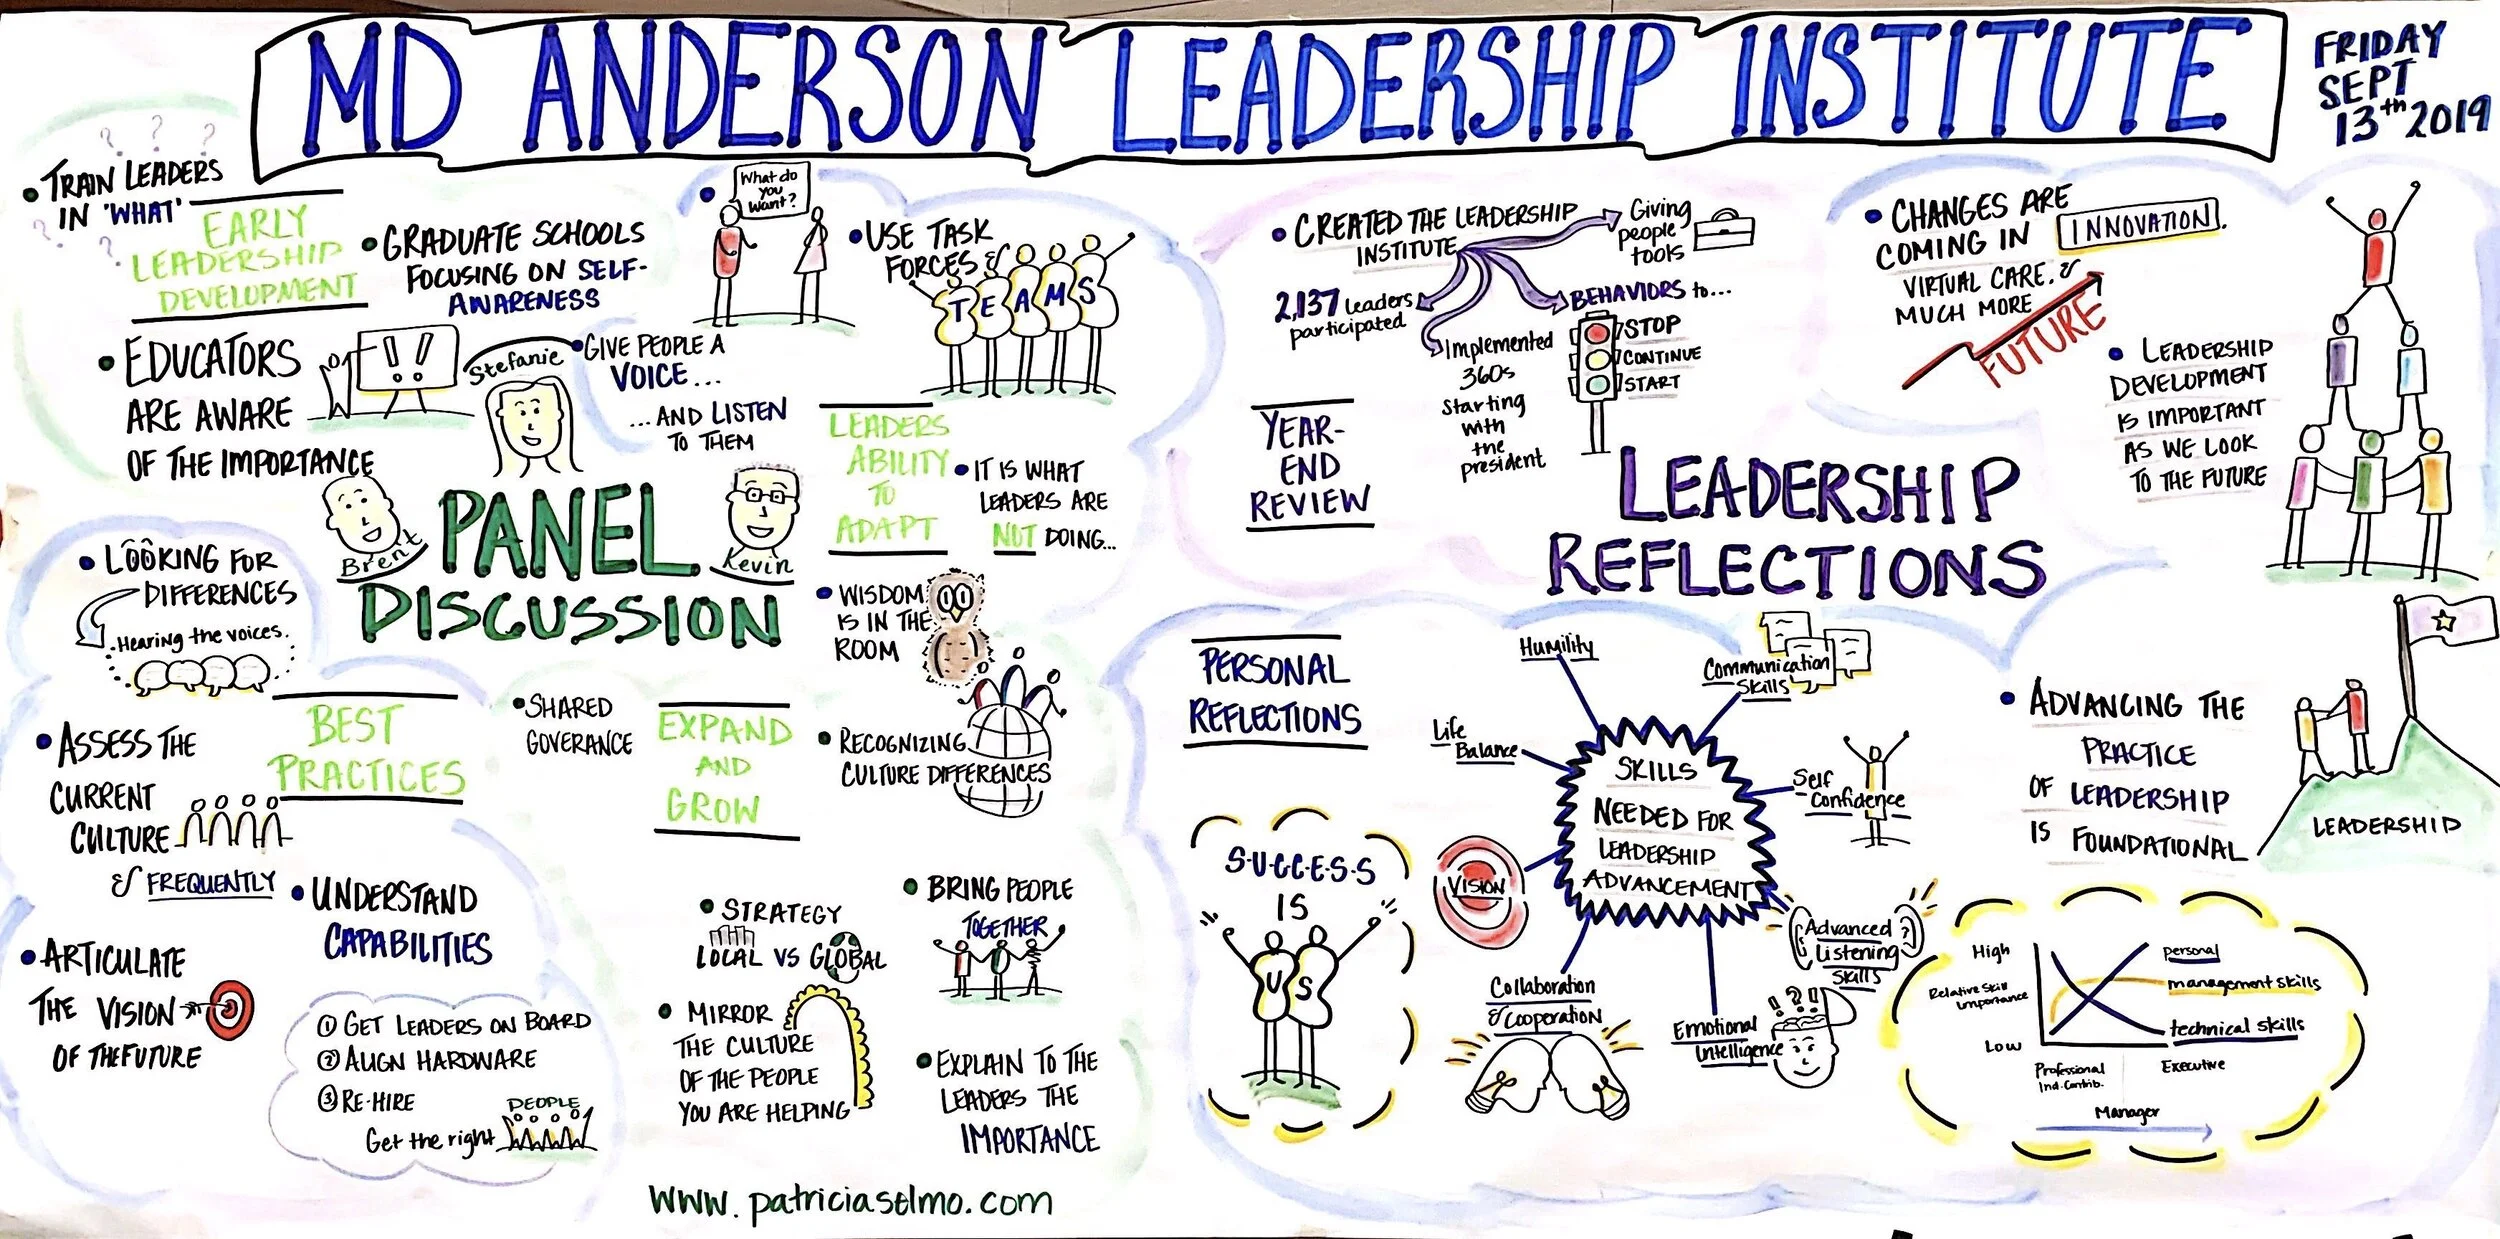 MD ANDERSON LEADERSHIP INSTITUTE
FRIDAY
SEPT
13th 2019
? ? ?
• TRAIN LEADERS
IN 'WHAT'
? ? ?
EARLY
LEADERSHIP
DEVELOPMENT
• GRADUATE SCHOOLS
FOCUSING ON SELF-
AWARENESS
• EDUCATORS
ARE AWARE
OF THE IMPORTANCE
!!
Stefanie
Brent
Kevin
PANEL
DISCUSSION
•
What do
you
want?
• USE TASK
FORCES &
TEAMS
• GIVE PEOPLE A
VOICE...
...AND LISTEN
TO THEM
LEADERS
ABILITY
TO
ADAPT
• IT IS WHAT
LEADERS ARE
NOT DOING...
• WISDOM
IS IN THE
ROOM
• LOOKING FOR
DIFFERENCES
Hearing the voices.
BEST
PRACTICES
• ASSESS THE
CURRENT
CULTURE
& FREQUENTLY
• UNDERSTAND
CAPABILITIES
• ARTICULATE
THE VISION
OF THE FUTURE
① GET LEADERS ON BOARD
② ALIGN HARDWARE
③ RE-HIRE
Get the right
PEOPLE
• SHARED
GOVERANCE
EXPAND
AND
GROW
• RECOGNIZING
CULTURE DIFFERENCES
• STRATEGY
LOCAL VS GLOBAL
• BRING PEOPLE
TOGETHER
• MIRROR
THE CULTURE
OF THE PEOPLE
YOU ARE HELPING
• EXPLAIN TO THE
LEADERS THE
IMPORTANCE
www.patriciaselmo.com
• CREATED THE LEADERSHIP
INSTITUTE
Giving
people
tools
2,137 leaders
participated
Implemented
360s
starting
with
the
president
BEHAVIORS to...
STOP
CONTINUE
START
YEAR-
END
REVIEW
LEADERSHIP
REFLECTIONS
• CHANGES ARE
COMING IN
INNOVATION.
VIRTUAL CARE. &
MUCH MORE
FUTURE
• LEADERSHIP
DEVELOPMENT
IS IMPORTANT
AS WE LOOK
TO THE FUTURE
PERSONAL
REFLECTIONS
S-U-C-C-E-S-S
IS
US
SKILLS
NEEDED FOR
LEADERSHIP
ADVANCEMENT
Humility
Communication
Skills
Life
Balance
Self
Confidence
VISION
Advanced
Listening
Skills
Collaboration
& Cooperation
Emotional
Intelligence
!?!
• ADVANCING THE
PRACTICE
OF LEADERSHIP
IS FOUNDATIONAL
LEADERSHIP
High
Relative Skill
Importance
Low
personal
management skills
technical skills
Professional
Ind. Contrib.
Executive
Manager